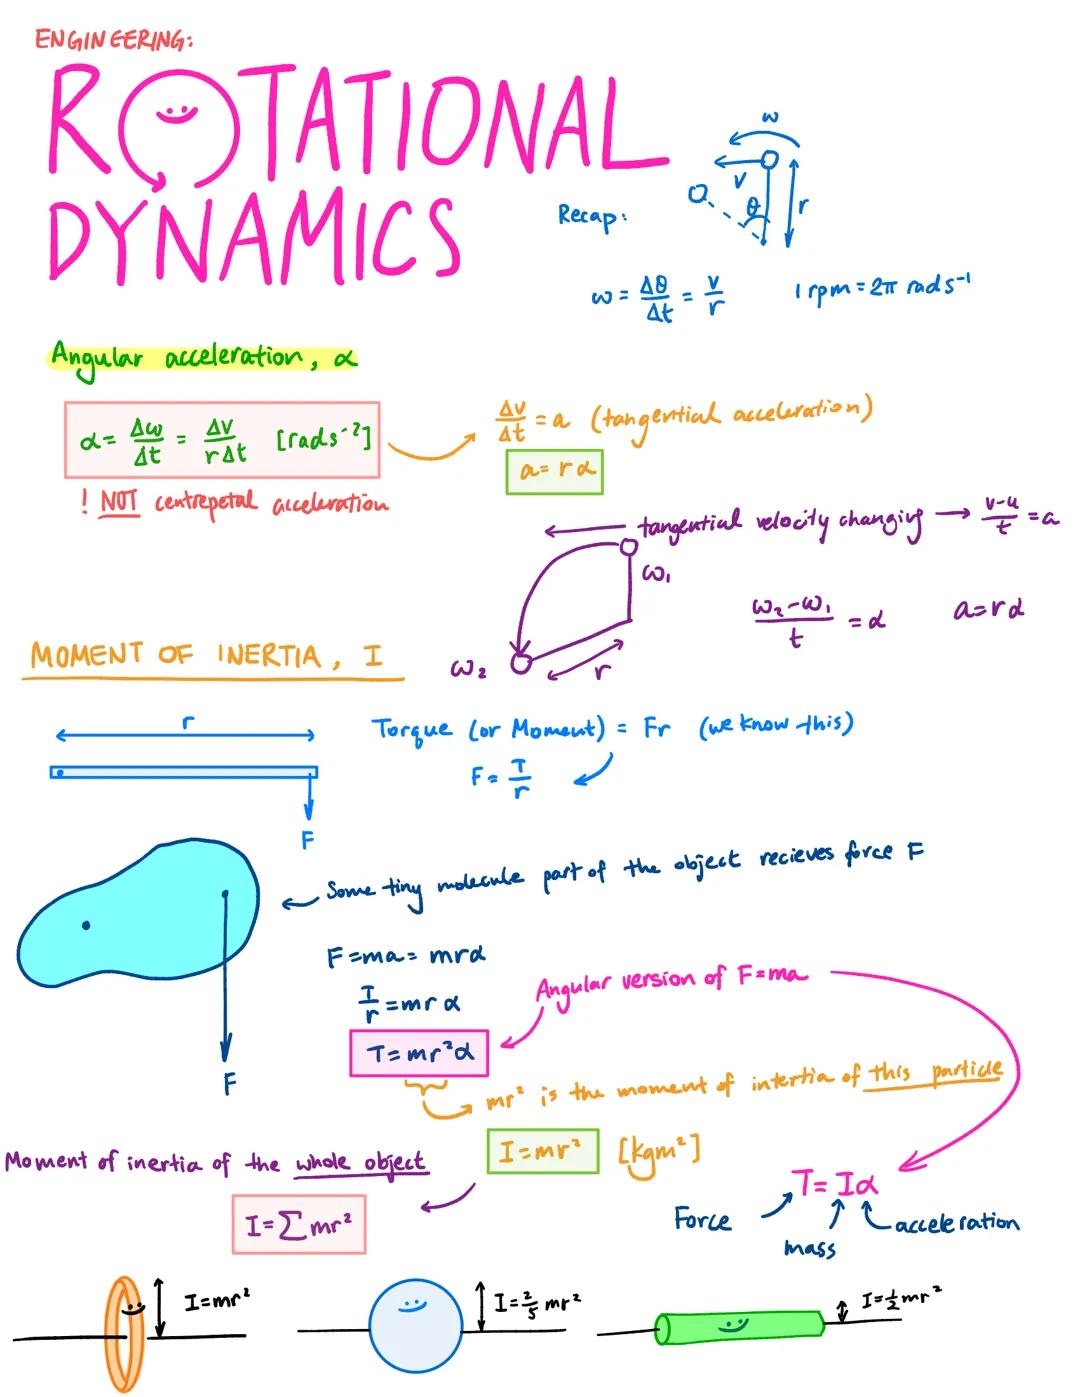 ENGINEERING:
ROTATIONAL
DYNAMICS
Recap:
ω
v
θ
r
ω = Δθ/Δt = v/r
1 rpm = 2π rads⁻¹
Angular acceleration, α
α = Δω/Δt = Δv/rΔt [rads⁻²]
! NOT centrepetal acceleration
Δv/Δt = a (tangential acceleration)
a = rα
tangential velocity changing → v-u/t = a
ω₁
ω₂
r
ω₂-ω₁/t = α
a = rα
MOMENT OF INERTIA, I
r
F
Torque (or Moment) = Fr (we know this)
F = T/r
Some tiny molecule part of the object recieves force F
F
F = ma = mrα
T/r = mrα
T = mr²α
Angular version of F=ma
mr² is the moment of intertia of this particle
I = mr² [kgm²]
Moment of inertia of the whole object
I = Σmr²
T = Iα
Force
mass
acceleration
I = mr²
I = 2/5 mr²
I = 1/2 mr²